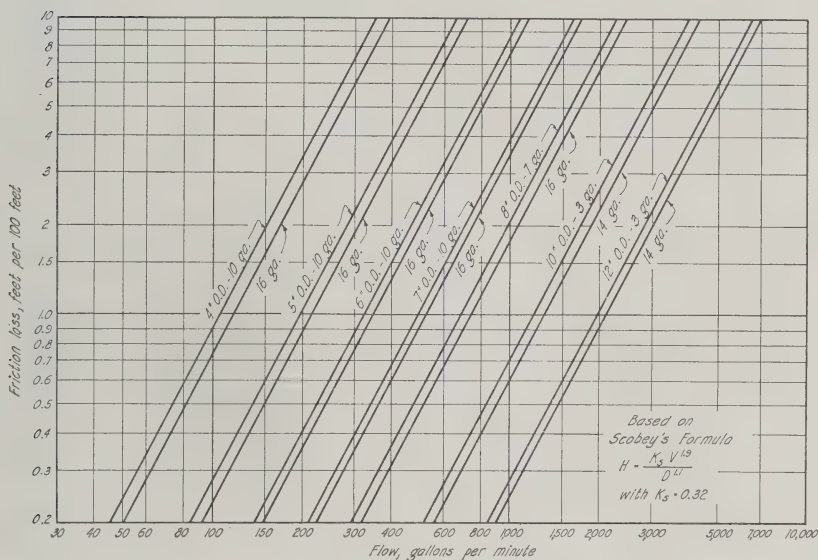 Friction loss, feet per 100 feet
10
9
8
7
6
5
4
3
2
1.5
1.0
0.9
0.8
0.7
0.6
0.5
0.4
0.3
0.2
4" O.D.-10 ga.
16 ga.
5" O.D.-10 ga.
16 ga.
6" O.D.-10 ga.
16 ga.
7" O.D.-10 ga.
16 ga.
8" O.D.-7 ga.
16 ga.
10" O.D.-3 ga.
14 ga.
12" O.D.-3 ga.
14 ga.
Based on
Scobey's Formula
H = Ks V^1.9 / D^1.1
with Ks = 0.32
30 40 50 60 80 100 150 200 300 400 600 800 1,000 1,500 2,000 3,000 5,000 7,000 10,000
Flow, gallons per minute